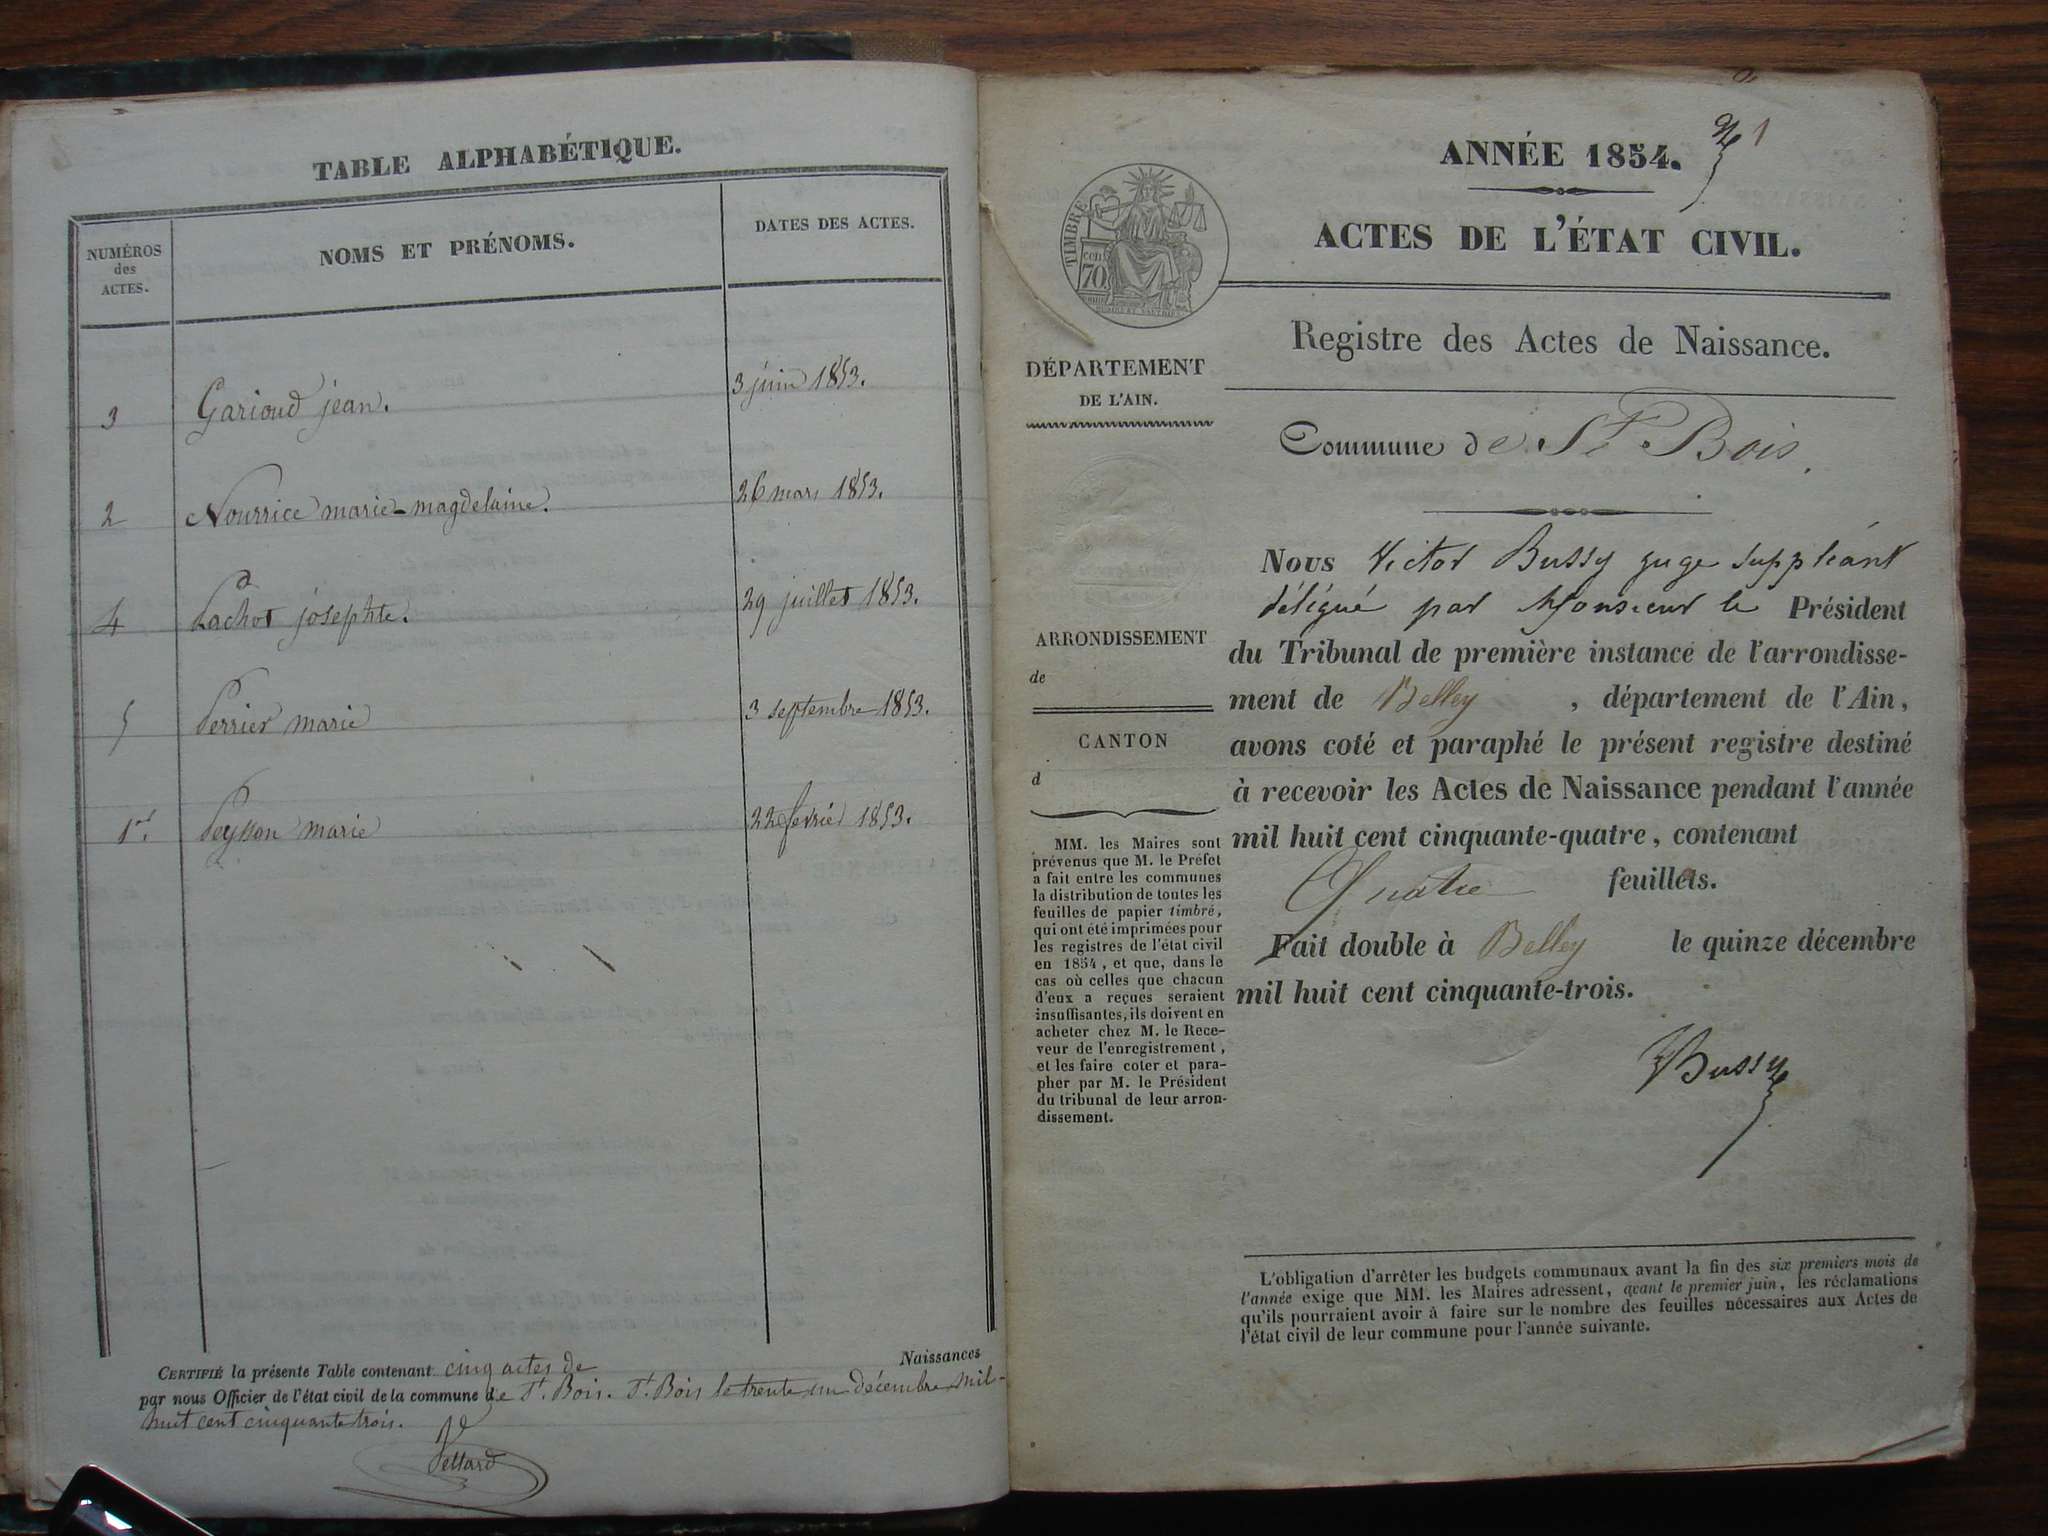 TABLE ALPHABÉTIQUE.
NUMÉROS
des
ACTES.
NOMS ET PRÉNOMS.
DATES DES ACTES.
3 Garioud jean. 3 juin 1853.
2 Nourrice marie-magdelaine. 26 mars 1853.
4 Pachot josephte. 29 juillet 1853.
5 Perrier marie 3 septembre 1853.
1er. Peysson marie 22 fevrié 1853.
CERTIFIÉ la présente Table contenant cinq actes de Naissances
par nous Officier de l'état civil de la commune de St. Bois. St. Bois le trente un décembre mil-
huit cent cinquante trois.
1
ANNÉE 1854.
ACTES DE L'ÉTAT CIVIL.
TIMBRE
70
Registre des Actes de Naissance.
DÉPARTEMENT
DE L'AIN.
Commune de St Bois.
ARRONDISSEMENT
de
CANTON
d
MM. les Maires sont
prévenus que M. le Préfet
a fait entre les communes
la distribution de toutes les
feuilles de papier timbré,
qui ont été imprimées pour
les registres de l'état civil
en 1854, et que, dans le
cas où celles que chacun
d'eux a reçues seraient
insuffisantes, ils doivent en
acheter chez M. le Rece-
veur de l'enregistrement,
et les faire coter et para-
pher par M. le Président
du tribunal de leur arron-
dissement.
Nous Victor Bussy juge suppléant
délégué par Monsieur le Président
du Tribunal de première instance de l'arrondisse-
ment de Belley, département de l'Ain,
avons coté et paraphé le présent registre destiné
à recevoir les Actes de Naissance pendant l'année
mil huit cent cinquante-quatre, contenant
Quatre feuillets.
Fait double à Belley le quinze décembre
mil huit cent cinquante-trois.
VBussy
L'obligation d'arrêter les budgets communaux avant la fin des six premiers mois de
l'année exige que MM. les Maires adressent, avant le premier juin, les réclamations
qu'ils pourraient avoir à faire sur le nombre des feuilles nécessaires aux Actes de
l'état civil de leur commune pour l'année suivante.